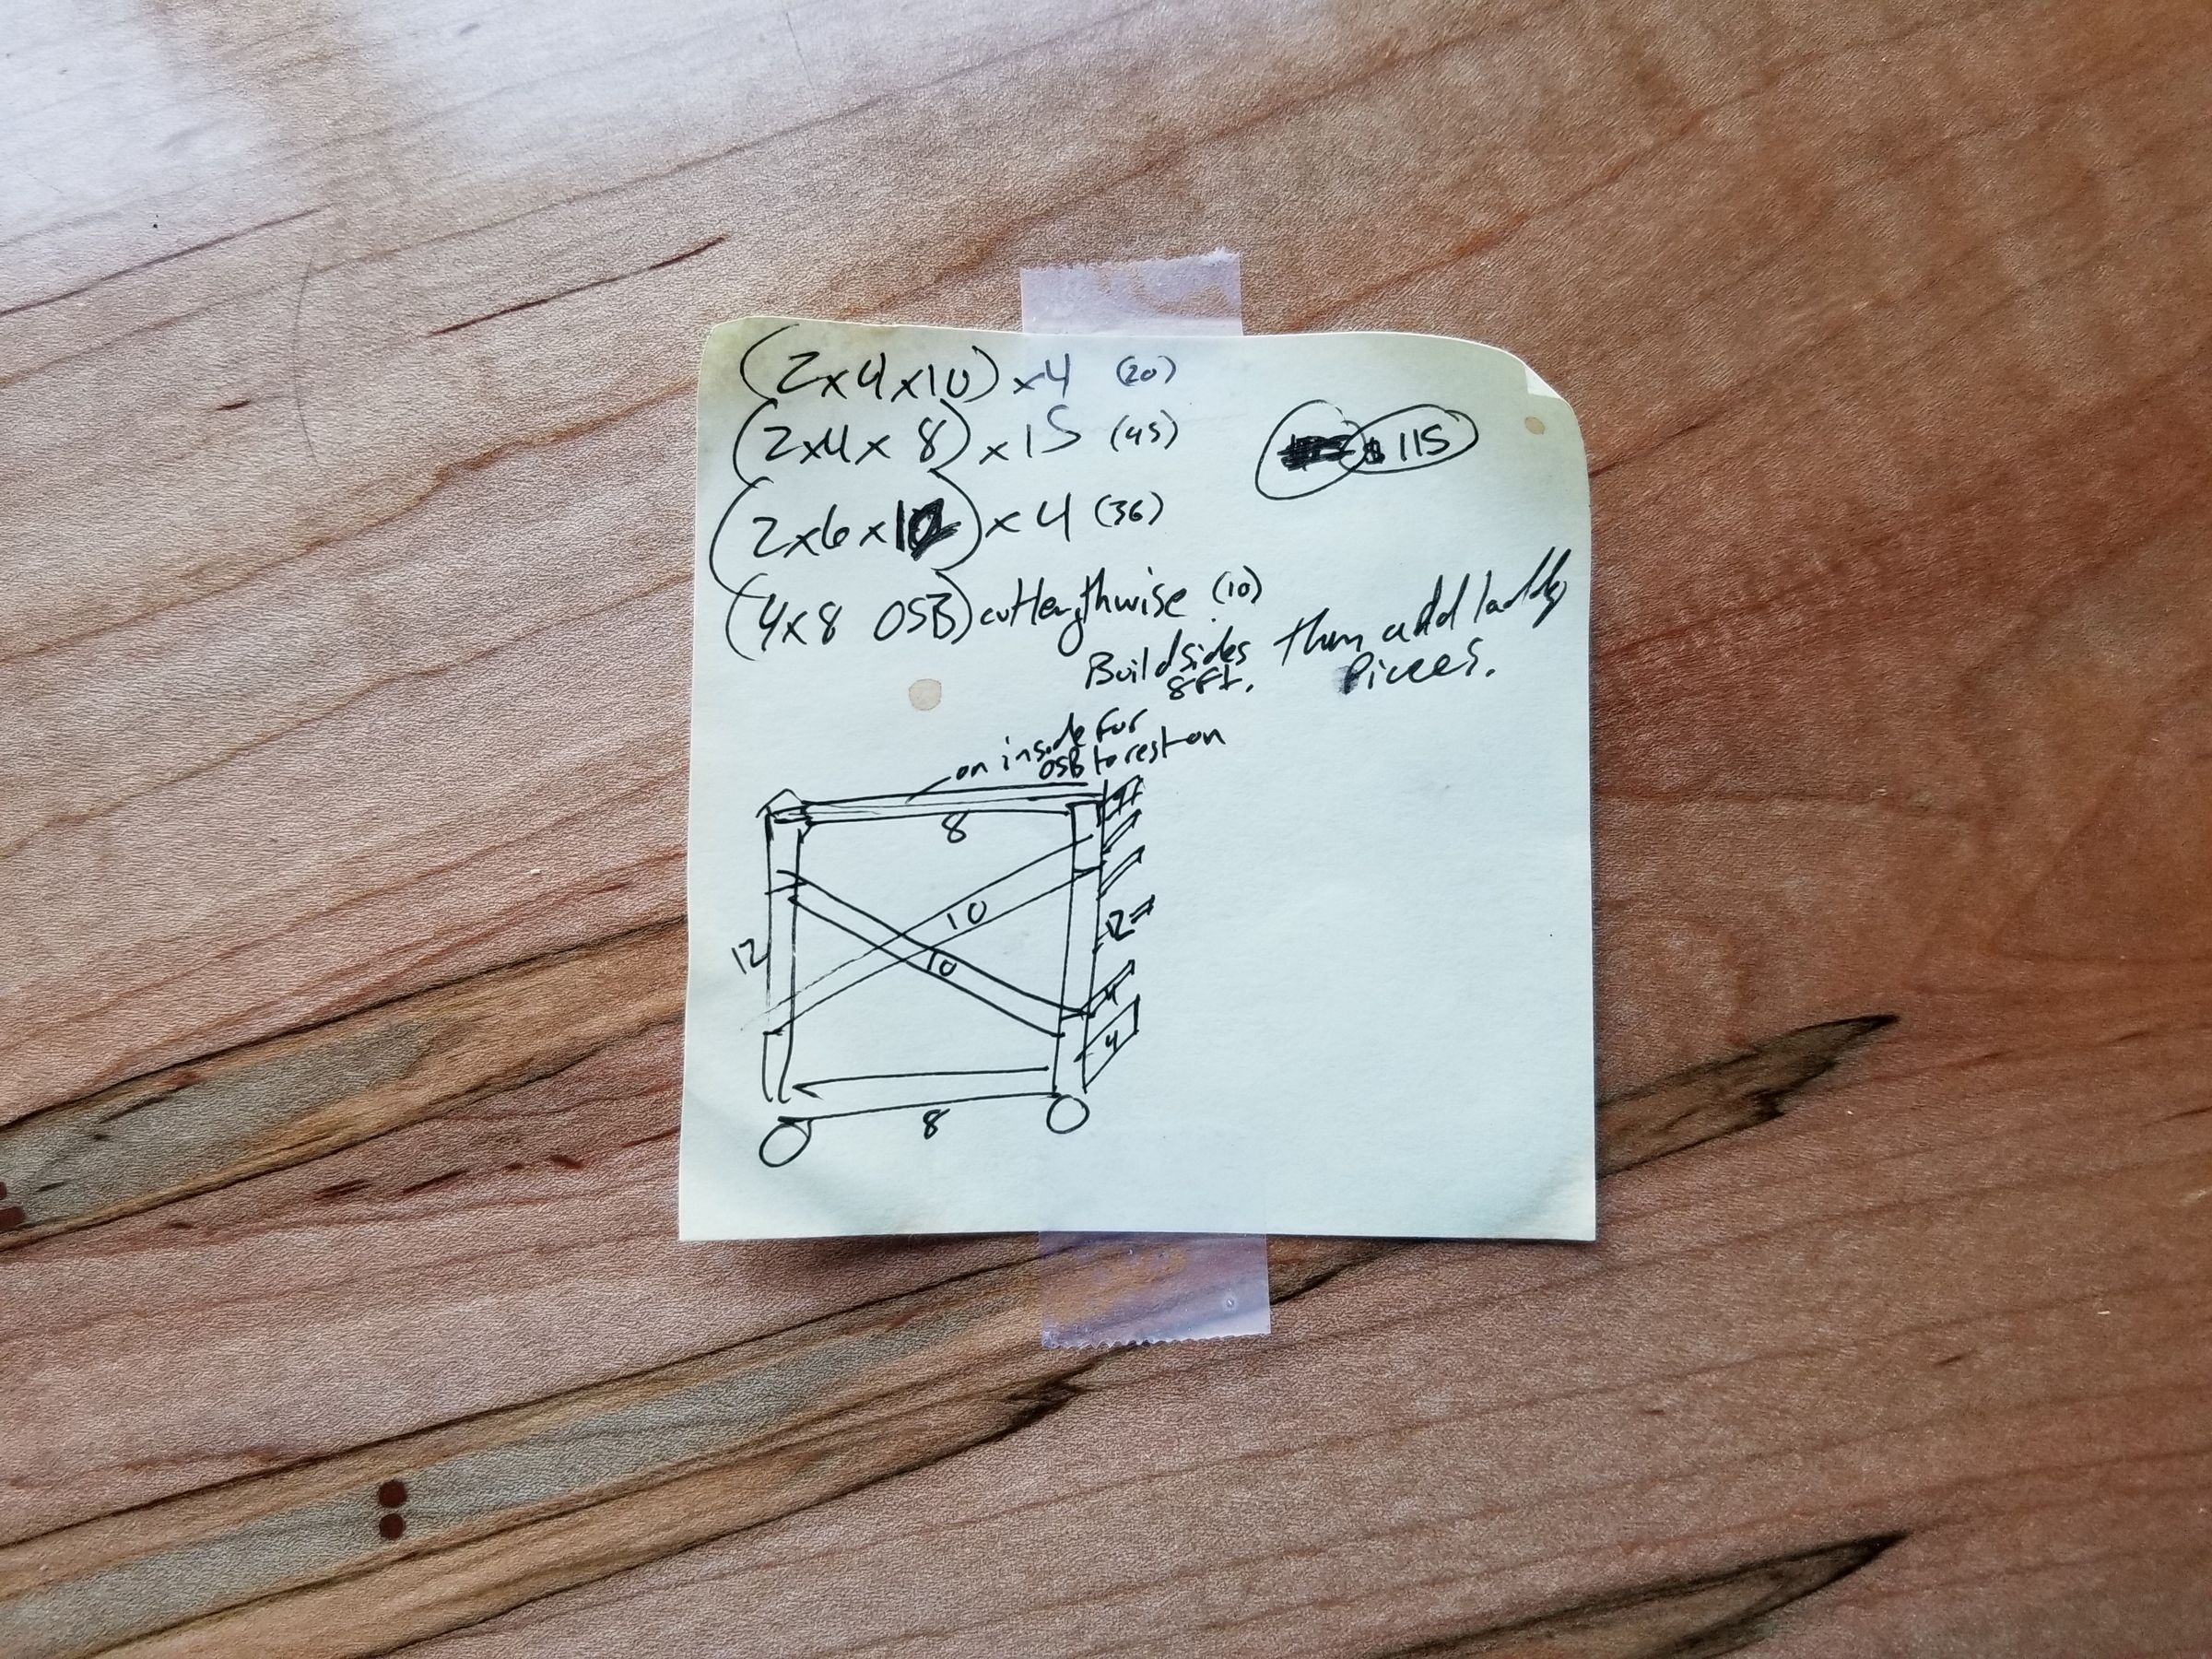 (2x4x10) x4 (20)
(2x4x8) x15 (45)
$115
(2x6x12) x4 (36)
(4x8 OSB) cut lengthwise (10)
Build sides then add laddr
8ft. Pieces.
on inside for
OSB to rest on
4
8
10
12
12
10
4
4
8